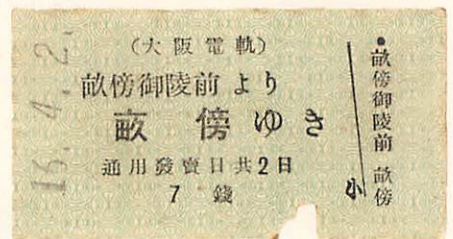 16.4.2.
(大阪電軌)
畝傍御陵前より
畝傍ゆき
通用發賣日共2日
7錢
•畝傍御陵前 畝傍
小